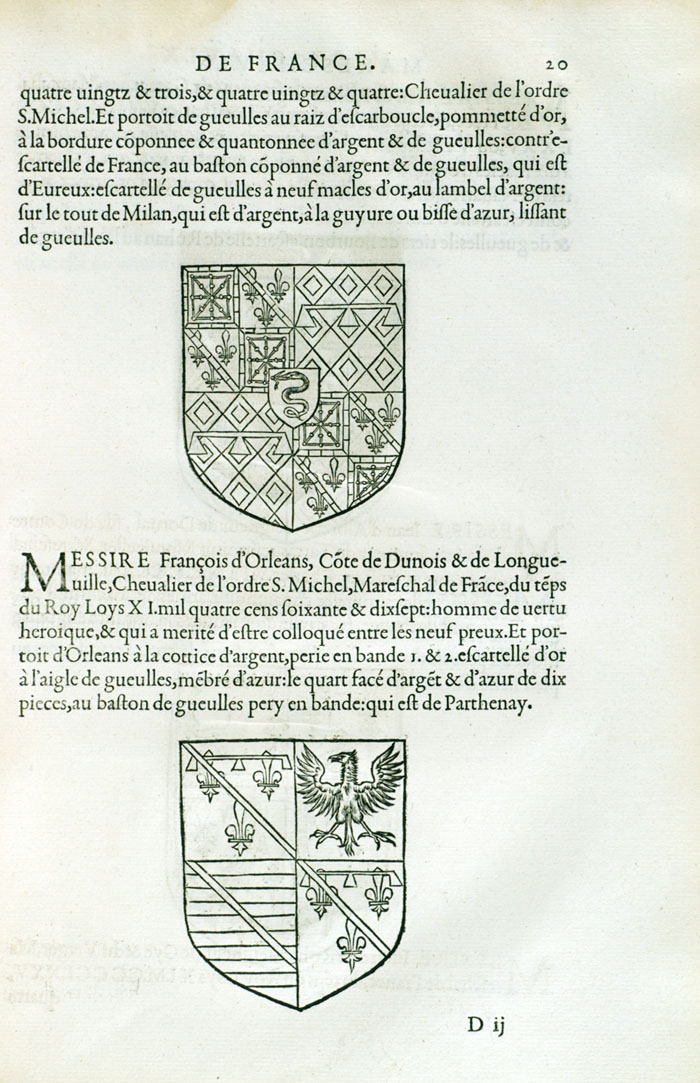 DE FRANCE. 20
quatre uingtz & trois,& quatre uingtz & quatre:Cheualier de l'ordre
S.Michel.Et portoit de gueulles au raiz d'eſcarboucle,pommetté d'or,
à la bordure cõponnee & quantonnee d'argent & de gueulles:contr'e-
ſcartellé de France, au baſton cõponné d'argent & de gueulles, qui eſt
d'Eureux:eſcartellé de gueulles à neuf macles d'or,au lambel d'argent:
ſur le tout de Milan,qui eſt d'argent,à la guyure ou biſſe d'azur, liſſant
de gueulles.
MESSIRE François d'Orleans, Cõte de Dunois & de Longue-
uille,Cheualier de l'ordre S. Michel,Mareſchal de Frãce,du tẽps
du Roy Loys X I.mil quatre cens ſoixante & dixſept:homme de uertu
heroique,& qui a merité d'eſtre colloqué entre les neuf preux.Et por-
toit d'Orleans à la cottice d'argent,perie en bande 1. & 2.eſcartellé d'or
à l'aigle de gueulles,mẽbré d'azur:le quart facé d'argẽt & d'azur de dix
pieces,au baſton de gueulles pery en bande:qui eſt de Parthenay.
D ij